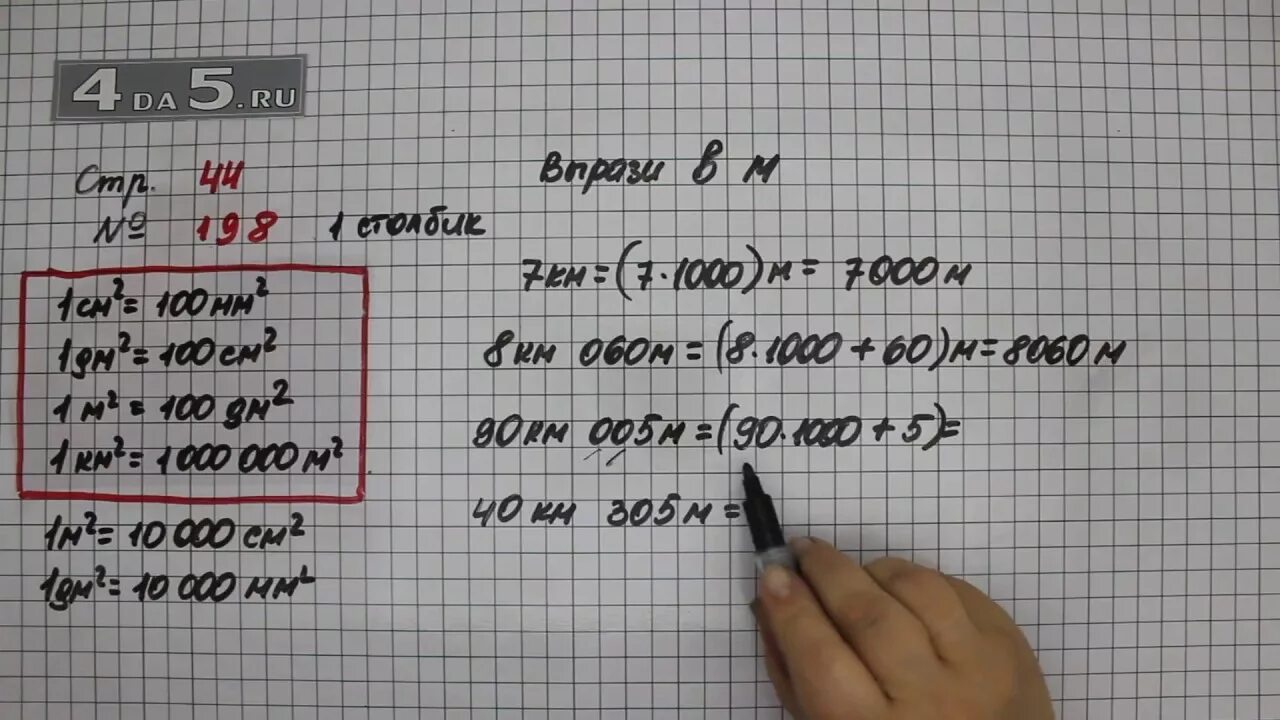 4DA5.RU
Стр. 44
№ 198 1 столбик
1см²= 100мм²
1дм²= 100см²
1м² = 100 дм²
1км²= 1000 000м²
1м²= 10 000 см²
1дм²= 10 000 мм²
Вырази в м
7км=(7·1000)м= 7000м
8км 060м=(8·1000+60)м=8060м
90км 005м=(90·1000+5)=
40км 305м=